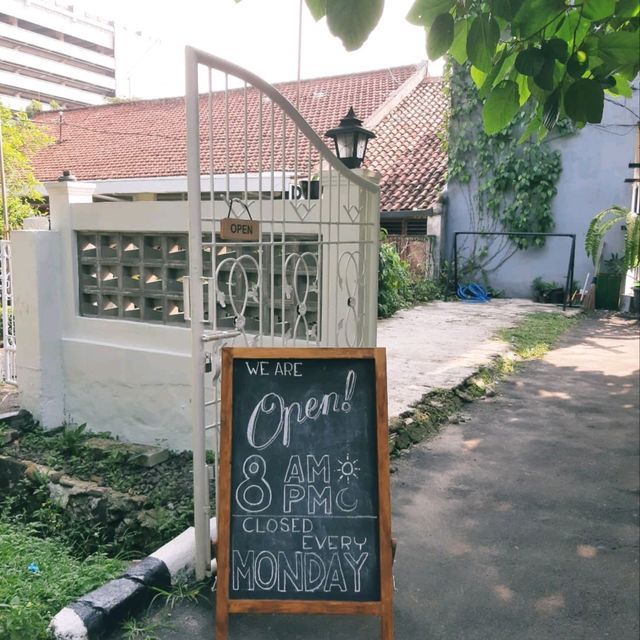 OPEN
WE ARE
Open!
8 AM
PM
CLOSED
EVERY
MONDAY